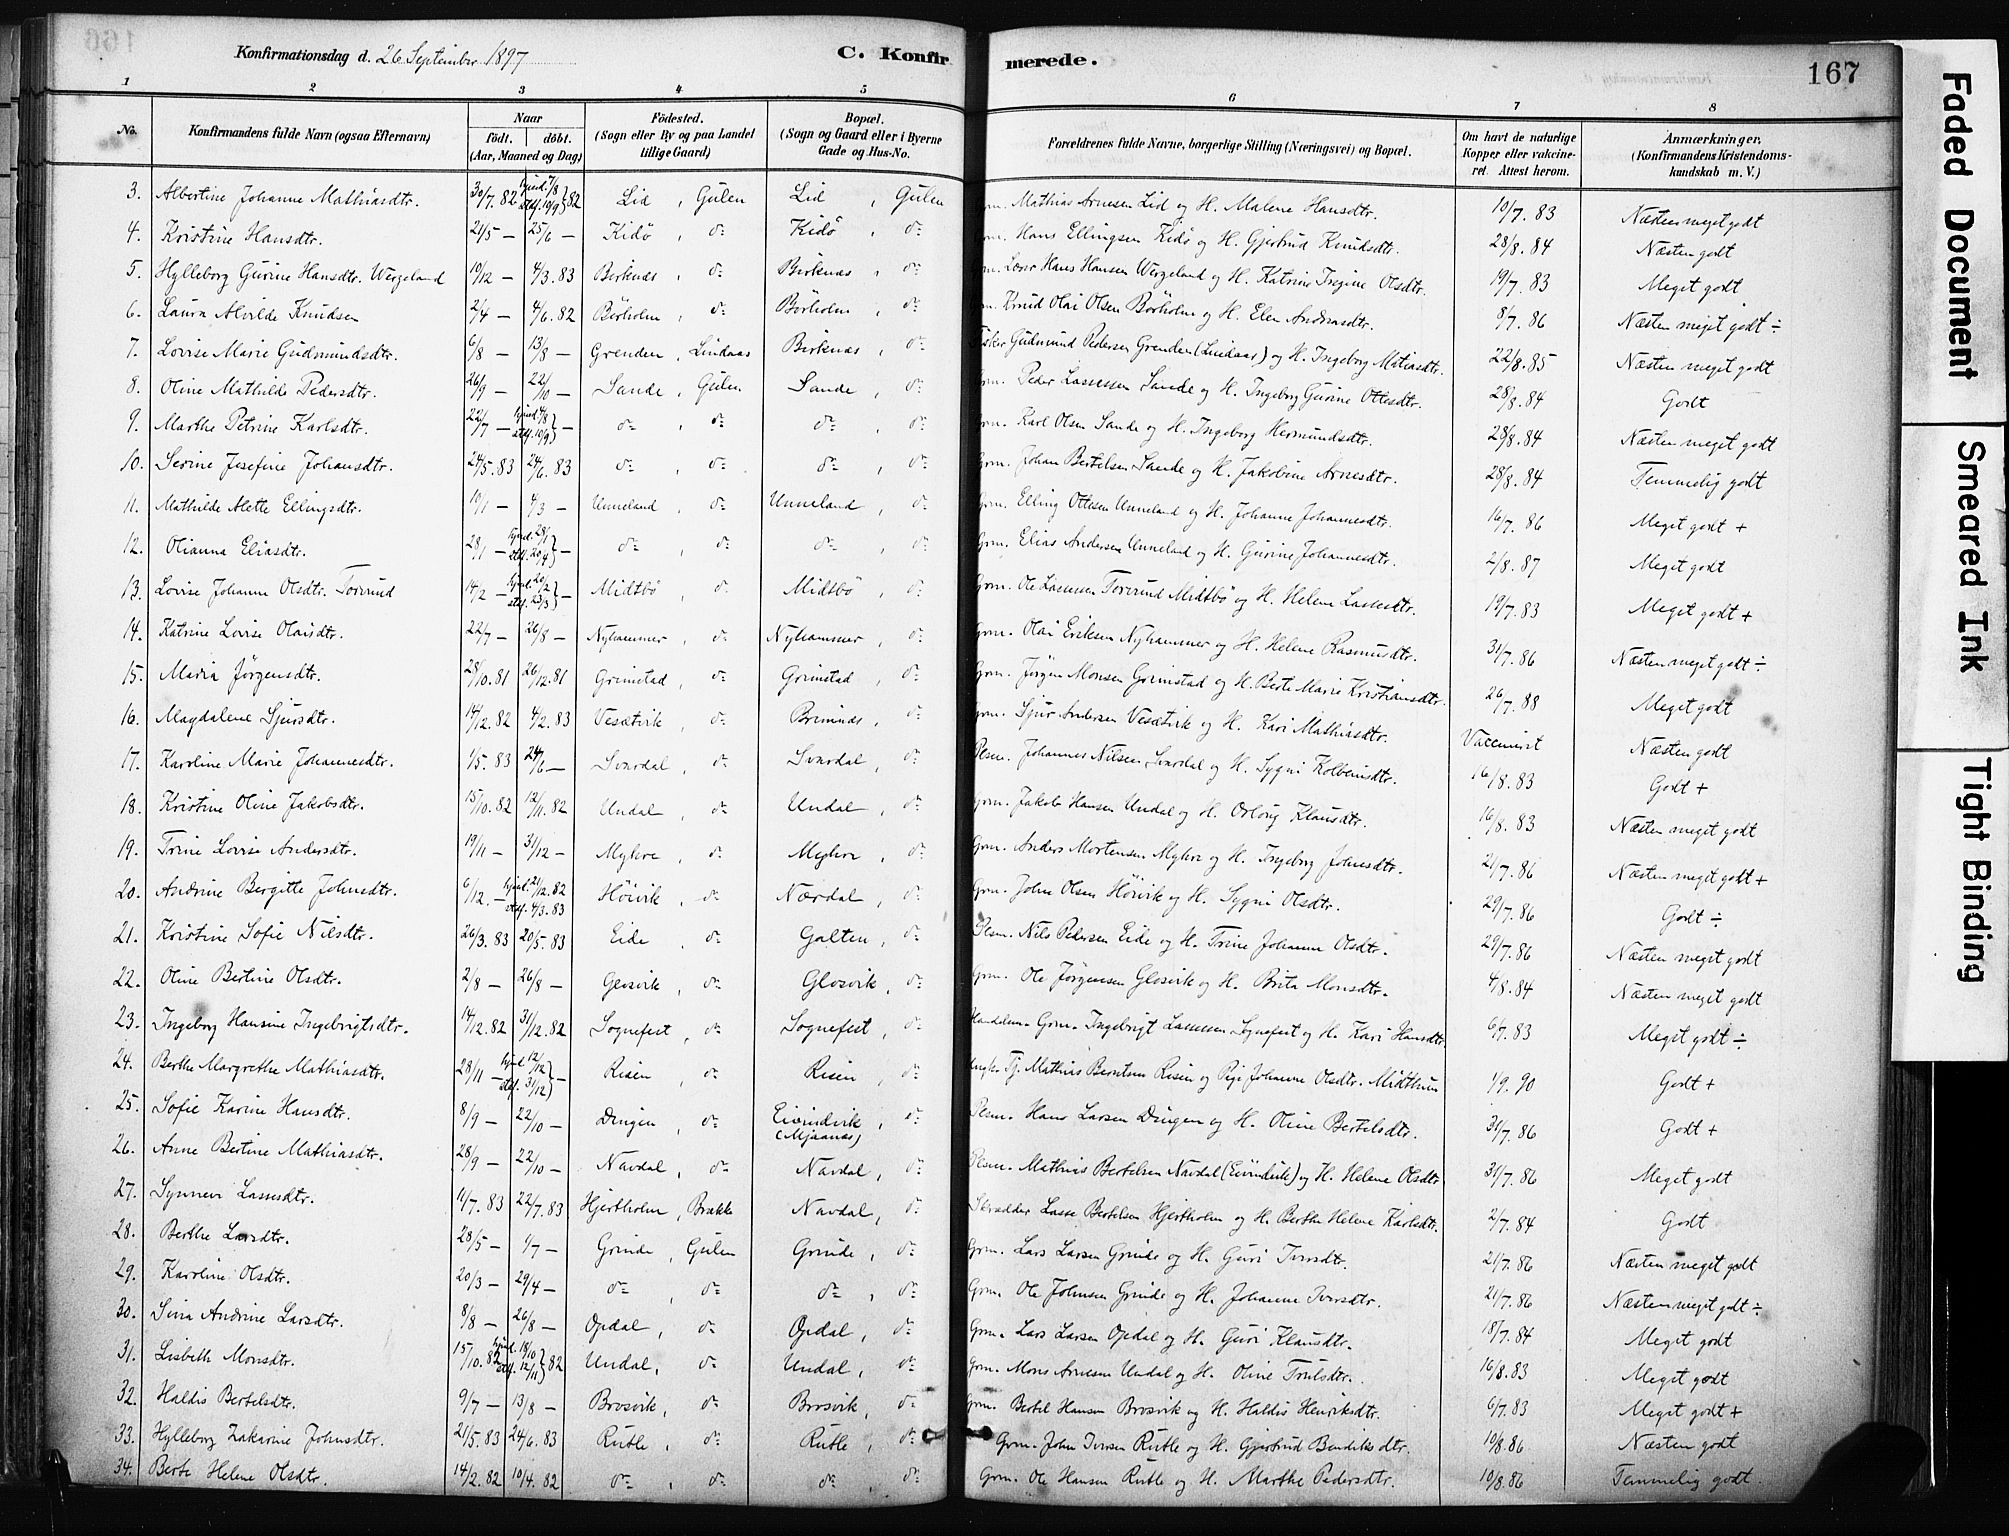 Konfirmationsdag d. 26 September 1897 C. Konfirmerede. 167
1 2 3 4 5 6 7 8
No. Konfirmandens fulde Navn (ogsaa Efternavn) Naar født. døbt. (Aar, Maaned og Dag) Födested. (Sogn eller By og paa Landet tillige Gaard) Bopæl. (Sogn og Gaard eller i Byerne Gade og Hus-No. Forældrenes fulde Navne, borgerlige Stilling (Næringsvei) og Bopæl. Om havt de naturlige Kopper eller vakcineret. Attest herom. Anmærkninger. (Konfirmandens Kristendomskundskab m. V.)
3. Albertine Johanne Mathiasdtr. 30/7. 82 hjmd. 7/8 stdf. 10/9 } 82 Lid, Gulen Lid, Gulen Grm. Mathias Arnesen Lid og H. Malene Hansdtr. 10/7. 83 Næsten meget godt
4. Kristine Hansdtr. 21/5 — 25/6 — Kidö, do Kidö, do Grm. Hans Ellingsen Kidö og H. Gjertrud Knudsdtr. 28/8. 84 Næsten godt
5. Hylleborg Gurine Hansdtr. Wergeland 19/12 — 4/3. 83 Birknæs, do Birknæs, do Hans Hansen Wergeland og H. Katrine Olsdtr. 19/7. 83 Meget godt
6. Laura Alvilde Knudsen 2/4 — 4/6. 82 Börholm, do Börholm, do Grm. Knud Olai Olsen Börholm og H. Elen Andreasdtr. 8/7. 86 Næsten meget godt ÷
7. Lovise Marie Gudmundsdtr. 6/8 — 13/8 — Grenden, Lindaas Birknæs, do Fisker Gudmund Pedersen Grenden (Lindaas) og H. Ingeborg Matiasdtr. 22/8. 85 Næsten meget godt
8. Oline Mathilde Pedersdtr. 26/9 — 22/10 — Sande, Gulen Sande, do Grm. Peder Lassesen Sande og H. Ingeborg Gurine Ottesdtr. 28/8. 84 Godt
9. Marthe Petrine Karlsdtr. 22/7 — hjmd. 4/8 stdf. 10/9 } — do, do do, do Grm. Karl Olsen Sande og H. Ingeborg Hermundsdtr. 28/8. 84 Næsten meget godt
10. Serine Josefine Johansdtr. 24/5. 83 24/6. 83 do, do do, do Grm. Johan Bertelsen Sande og H. Jakobine Arnesdtr. 28/8. 84 Temmelig godt
11. Mathilde Alette Ellingsdtr. 19/1 — 4/3 — Unneland, do Unneland, do Grm. Elling Ottesen Unneland og H. Johanne Johannesdtr. 16/7. 86 Meget godt +
12. Olianna Eliasdtr. 28/1 — hjmd. 28/1 stdf. 20/4 } — do, do do, do Grm. Elias Andersen Unneland og H. Gurine Johannesdtr. 2/8. 87 Meget godt
13. Lovise Johanne Olsdtr. Torsund 14/2 — hjmd. 20/2 stdf. 23/3 } — Midtbö, do Midtbö, do Grm. Ole Lassesen Torsund Midtbö og H. Helene Lassesdtr. 19/7. 83 Meget godt +
14. Katrine Lovise Olaisdtr. 22/7 — 26/8 — Nyhammer, do Nyhammer, do Grm. Olai Eriksen Nyhammer og H. Helene Rasmusdtr. 31/7. 86 Næsten meget godt ÷
15. Maria Jörgensdtr. 28/10. 81 26/12. 81 Grimstad, do Grimstad, do Grm. Jörgen Monsen Grimstad og H. Berte Marie Kristiansdtr. 26/7. 88 Meget godt
16. Magdalene Sjursdtr. 14/12. 82 4/2. 83 Vesætvik, do Brimnæs, do Grm. Sjur Andersen Vesætvik og H. Kari Mathiasdtr. Vaccineret Næsten godt
17. Karoline Marie Johannesdtr. 1/5. 83 24/6 — Svardal, do Svardal, do Plsm. Johannes Nilsen Svardal og H. Sygni Kolbensdtr. 16/8. 83 Godt +
18. Kristine Oline Jakobsdtr. 15/10. 82 12/11. 82 Undal, do Undal, do Grm. Jakob Hansen Undal og H. Orloug Klausdtr. 16/8. 83 Næsten meget godt
19. Trine Lovise Andersdtr. 19/11 — 31/12 — Myhre, do Myhre, do Grm. Anders Mortensen Myhre og H. Ingeborg Johnsdtr. 21/7. 86 Næsten meget godt +
20. Andrine Bergitte Johnsdtr. 6/12. — hjmd. 21/12. 82 stdf. 4/3. 83 Höivik, do Nærdal, do Grm. John Olsen Höivik og H. Sygni Olsdtr. 29/7. 86 Godt ÷
21. Kristine Sofie Nilsdtr. 26/3. 83 20/5. 83 Eide, do Galten, do Plsm. Nils Pedersen Eide og H. Trine Johanne Olsdtr. 29/7. 86 Næsten meget godt
22. Oline Bertine Olsdtr. 2/8 — 26/8 — Glosvik, do Glosvik, do Grm. Ole Jörgensen Glosvik og H. Brita Monsdtr. 4/8. 84 Næsten meget godt
23. Ingeborg Hansine Ingebrigtsdtr. 14/12. 82 31/12. 82 Sognefest, do Sognefest, do Handelsm. Grm. Ingebrigt Lassesen Sognefest og H. Kari Hansdtr. 6/7. 83 Meget godt ÷
24. Berthe Margrethe Mathiasdtr. 28/11 — hjmd. 12/12 stdf. 31/12 } — Risen, do Risen, do Ungk. Tj. Mathias Berntsen Risen og Pige Johanne Olsdtr. Midthun 1/9. 90 Godt +
25. Sofie Karine Hansdtr. 8/9 — 22/10 — Dingen, do Eivindvik (Mjaanæs), do Plsm. Hans Larsen Dingen og H. Oline Bertelsdtr. 31/7. 86 Godt +
26. Anne Bertine Mathiasdtr. 28/9 — 22/10 — Navdal, do Navdal, do Plsm. Mathias Bertelsen Navdal (Eivindvik) og H. Helene Olsdtr. 31/7. 86 Meget godt
27. Synnevi Lassesdtr. 11/7. 83 22/7. 83 Hjertholm, Brække Navdal, do Skrædder Lasse Bertelsen Hjertholm og H. Berthe Helene Karlsdtr. 2/7. 84 Godt
28. Berthe Larsdtr. 28/5 — 1/7 — Grinde, Gulen Grinde, do Grm. Lars Larsen Grinde og H. Guri Iversdtr. 21/7. 86 Næsten meget godt
29. Karoline Olsdtr. 20/3 — 29/4 — do, do do, do Grm. Ole Johnsen Grinde og H. Johanne Iversdtr. 21/7. 86 Næsten meget godt ÷
30. Sina Andrine Larsdtr. 8/8 — 26/8 — Opdal, do Opdal, do Grm. Lars Larsen Opdal og H. Guri Klausdtr. 18/7. 84 Meget godt
31. Lisbeth Monsdtr. 15/10. 82 hjmd. 18/10 stdf. 12/11 } 82 Undal, do Undal, do Grm. Mons Arnesen Undal og H. Oline Trulsdtr. 16/8. 83 Meget godt
32. Haldis Bertelsdtr. 9/7 — 13/8 — Brosvik, do Brosvik, do Grm. Bertel Hansen Brosvik og H. Haldis Henriksdtr. 6/7. 83 Meget godt +
33. Hylleborg Zakarine Johnsdtr. 21/5. 83 24/6. 83 Rutle, do Rutle, do Grm. John Iversen Rutle og H. Gjertrud Bendiksdtr. 10/8. 86 Næsten godt
34. Berte Helene Olsdtr. 14/2. 82 10/4. 82 do, do do, do Grm. Ole Hansen Rutle og H. Marthe Pedersdtr. 10/8. 86 Temmelig godt
Faded Document
Smeared Ink
Tight Binding